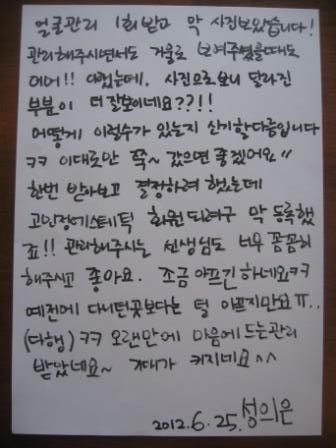 얼굴관리 1회 받고 막 사진보았습니다!
관리해주시면서도 거울로 보여주셨을때도
어머!! 이랬는데, 사진으로보니 달라진
부분이 더 잘보이네요??!!
어떻게 이럴수가 있는지 신기할다름입니다
ㅋㅋ 이대로만 쭉~ 갔으면 좋겠어요"
한번 받아보고 결정하려 했는데
고인정에스테틱 회원되려구 막 등록했
죠!! 관리해주시는 선생님도 너무 꼼꼼히
해주시고 좋아요. 조금 아프긴하네요ㅋㅋ
예전에 다니던곳보다는 덜 아프지만요 ㅠ..
(다행) ㅋㅋ 오랜만에 마음에드는관리
받았네요~ 기대가 커지네요^^
2012.6.25. 성의은